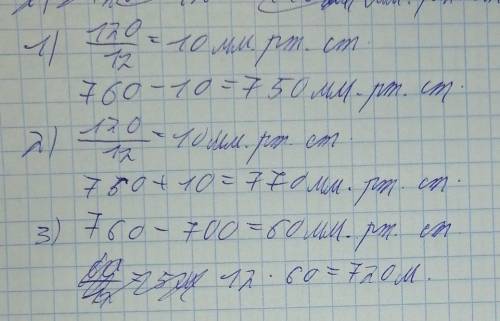 1) 120/12 = 10 мм. рт. ст.
760 - 10 = 750 мм. рт. ст.
2) 120/12 = 10 мм. рт. ст.
760 + 10 = 770 мм. рт. ст.
3) 760 - 700 = 60 мм. рт. ст.
12 · 60 = 720 м.